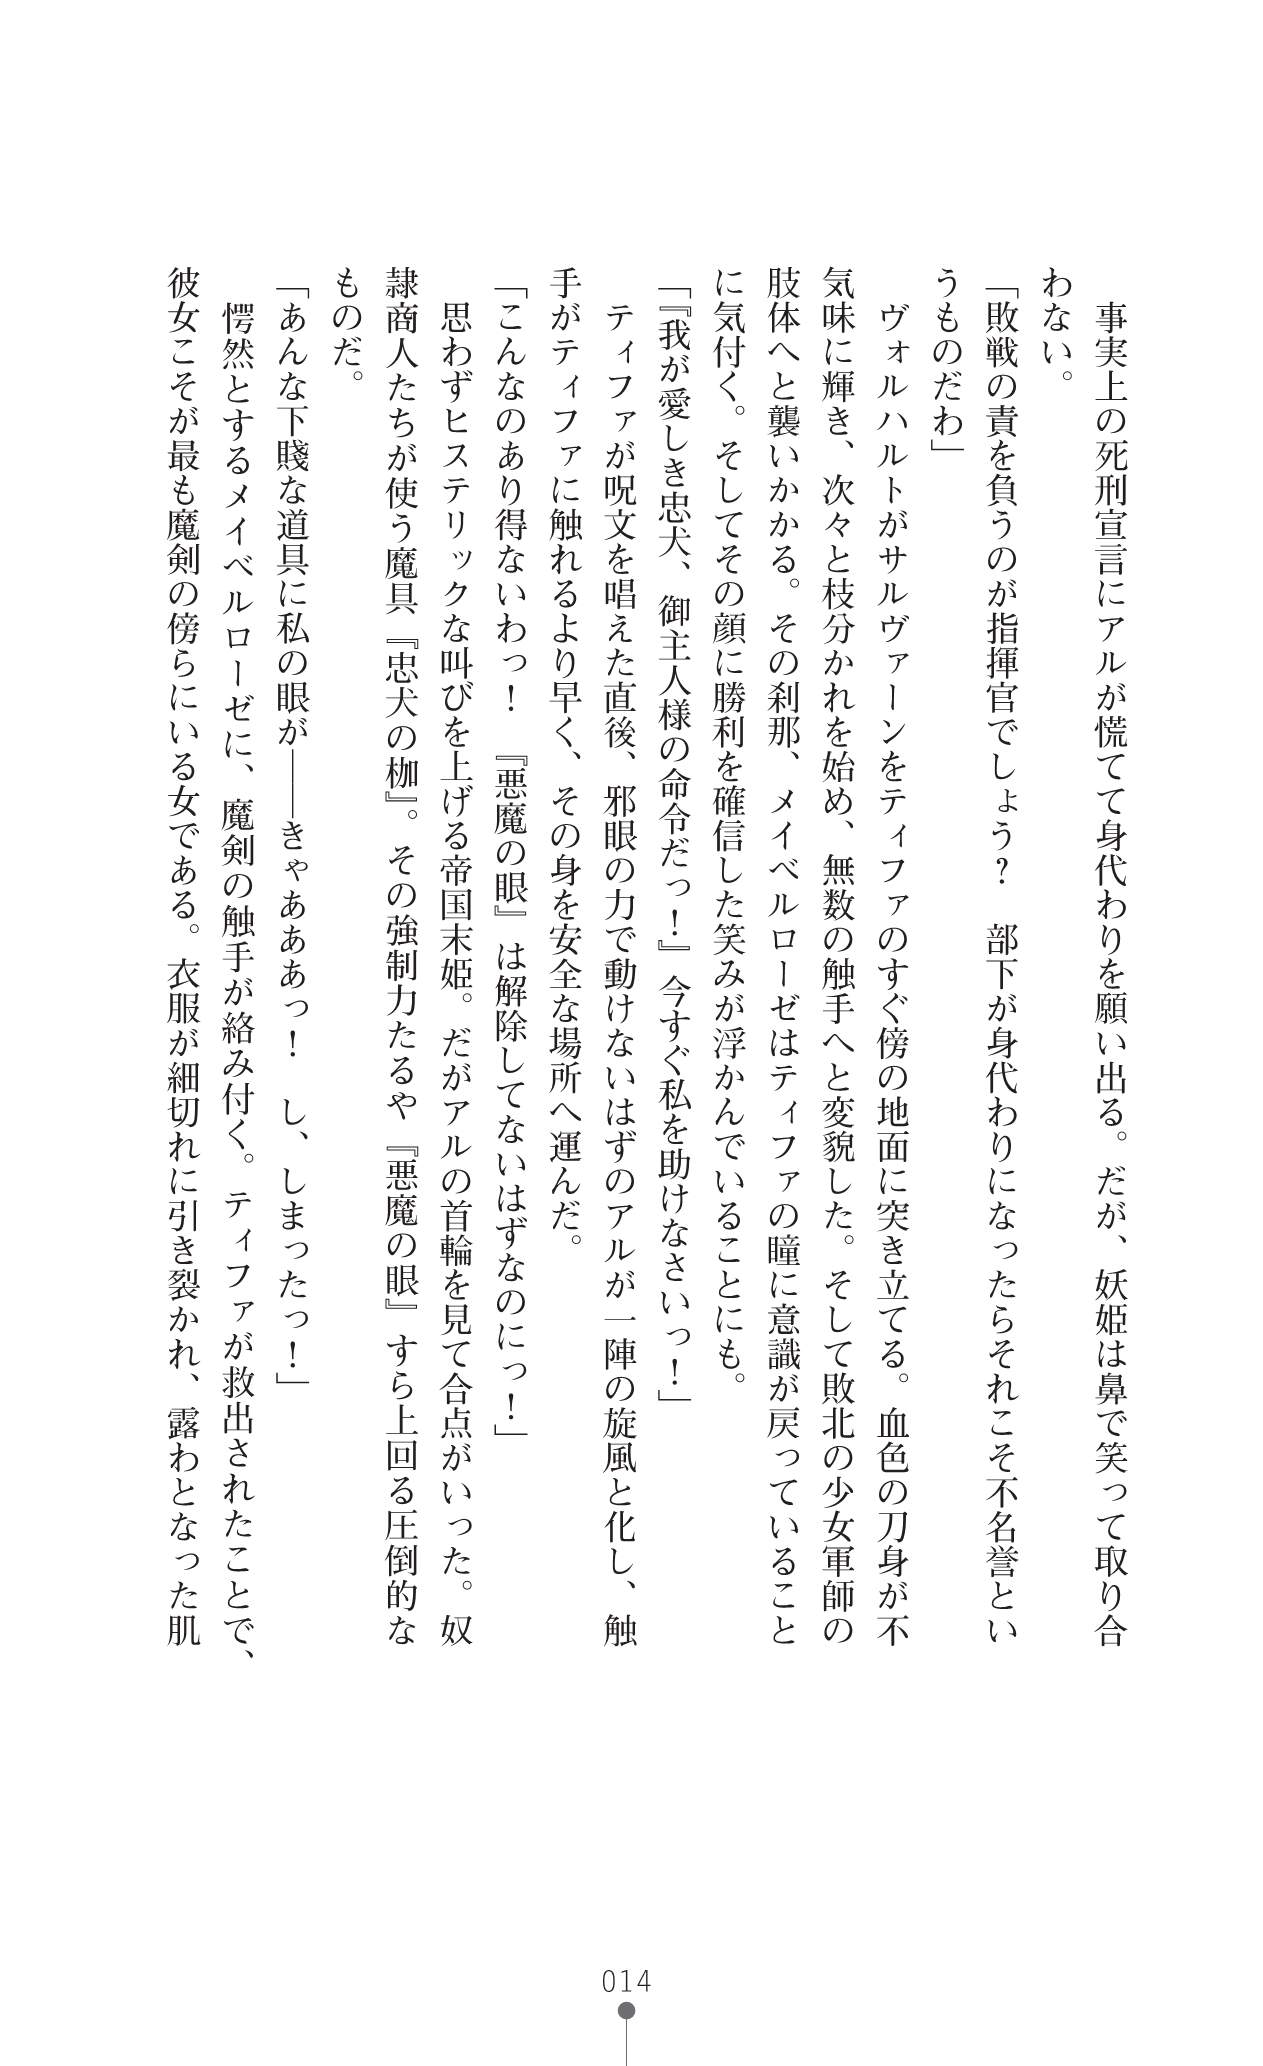 事実上の死刑宣言にアルが慌てて身代わりを願い出る。だが、妖姫は鼻で笑って取り合
わない。
「敗戦の責を負うのが指揮官でしょう？　部下が身代わりになったらそれこそ不名誉とい
うものだわ」
　ヴォルハルトがサルヴァーンをティファのすぐ傍の地面に突き立てる。血色の刀身が不
気味に輝き、次々と枝分かれを始め、無数の触手へと変貌した。そして敗北の少女軍師の
肢体へと襲いかかる。その刹那、メイベルローゼはティファの瞳に意識が戻っていること
に気付く。そしてその顔に勝利を確信した笑みが浮かんでいることにも。
「『我が愛しき忠犬、御主人様の命令だっ！』今すぐ私を助けなさいっ！」
　ティファが呪文を唱えた直後、邪眼の力で動けないはずのアルが一陣の旋風と化し、触
手がティファに触れるより早く、その身を安全な場所へ運んだ。
「こんなのあり得ないわっ！　『悪魔の眼』は解除してないはずなのにっ！」
　思わずヒステリックな叫びを上げる帝国末姫。だがアルの首輪を見て合点がいった。奴
隷商人たちが使う魔具『忠犬の枷』。その強制力たるや『悪魔の眼』すら上回る圧倒的な
ものだ。
「あんな下賤な道具に私の眼が――きゃあああっ！　し、しまったっ！」
　愕然とするメイベルローゼに、魔剣の触手が絡み付く。ティファが救出されたことで、
彼女こそが最も魔剣の傍らにいる女である。衣服が細切れに引き裂かれ、露わとなった肌
014